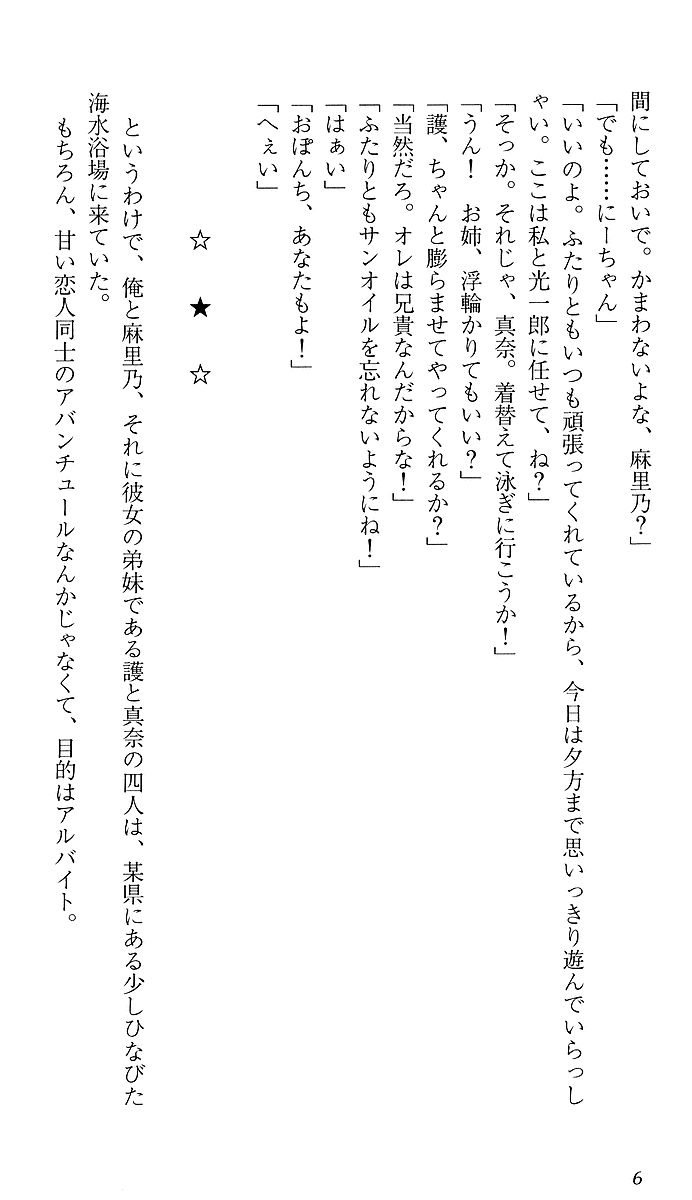 間にしておいで。かまわないよな、麻里乃？」
「でも……にーちゃん」
「いいのよ。ふたりともいつも頑張ってくれているから、今日は夕方まで思いっきり遊んでいらっし
ゃい。ここは私と光一郎に任せて、ね？」
「そっか。それじゃ、真奈。着替えて泳ぎに行こうか！」
「うん！　お姉、浮輪かりてもいい？」
「護、ちゃんと膨らませてやってくれるか？」
「当然だろ。オレは兄貴なんだからな！」
「ふたりともサンオイルを忘れないようにね！」
「はぁい」
「おぽんち、あなたもよ！」
「へぇい」
☆　★　☆
というわけで、俺と麻里乃、それに彼女の弟妹である護と真奈の四人は、某県にある少しひなびた
海水浴場に来ていた。
もちろん、甘い恋人同士のアバンチュールなんかじゃなくて、目的はアルバイト。
6